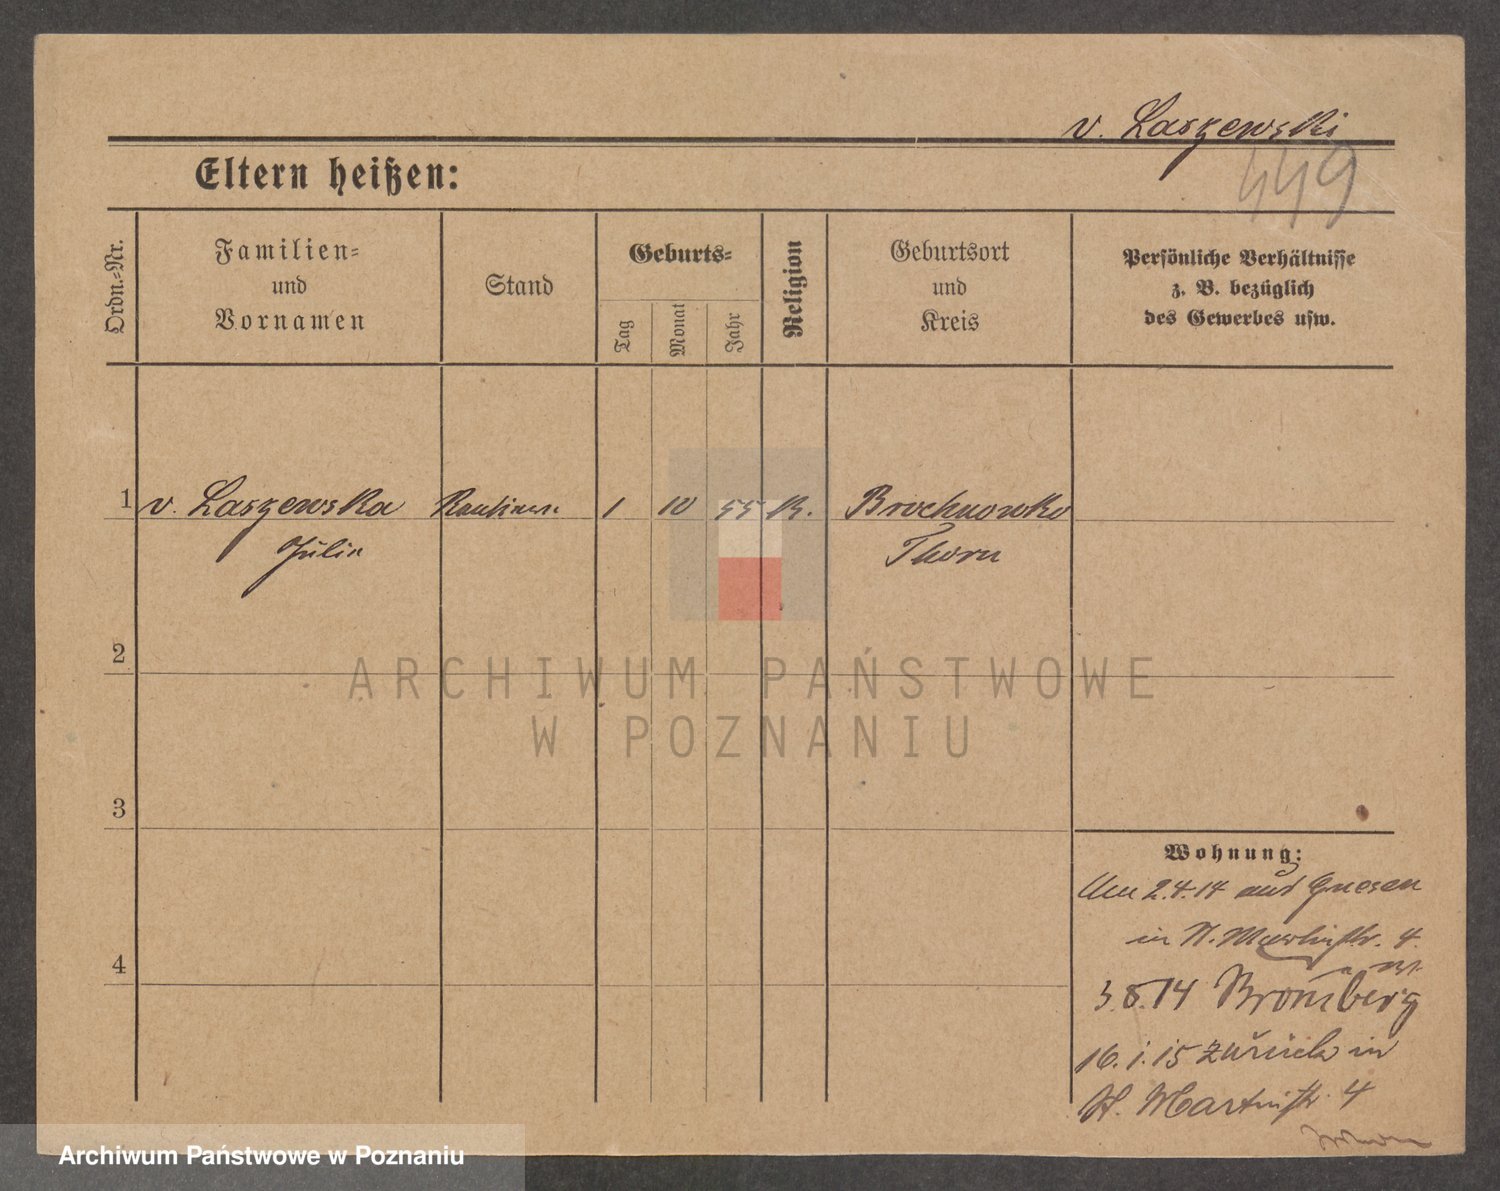 v. Laszewski
449
Eltern heißen:
Ordn.-Nr.
Familien-
und
Vornamen
Stand
Geburts-
Tag
Monat
Jahr
Religion
Geburtsort
und
Kreis
Persönliche Verhältnisse
z. B. bezüglich
des Gewerbes usw.
1 v. Laszewska 1 10 55 K. Brochnowko
Julia Thorn
2
3
4
ARCHIWUM PAŃSTWOWE
W POZNANIU
Wohnung:
2.4.14 aus Gnesen
in St. Martinstr. 4.
3.8.14 Bromberg
16.1.15 zurück in
St. Martinstr. 4
Archiwum Państwowe w Poznaniu